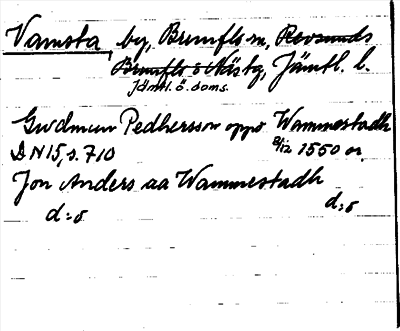 Vamsta, by, Brunflo sn, Revsunds
Brunflo o Näs tg, Jämtl. l.
Jämtl. ö. doms.
Gwdmun Pedhersson oppo Wammestadh
DN 15, s. 710 8/12 1550 or.
Jon Anders aa Wammestadh
d:o d:o